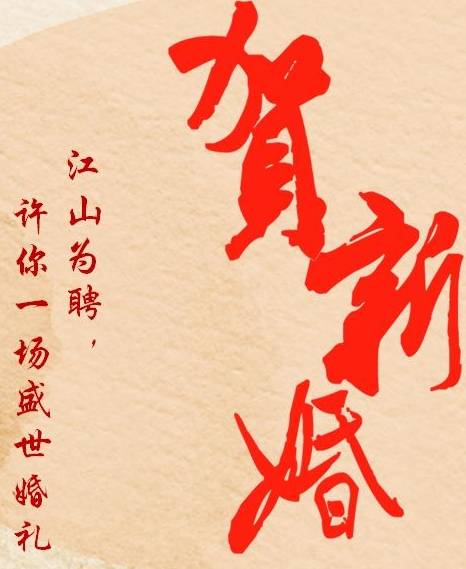 贺新婚
江山为聘，
许你一场盛世婚礼